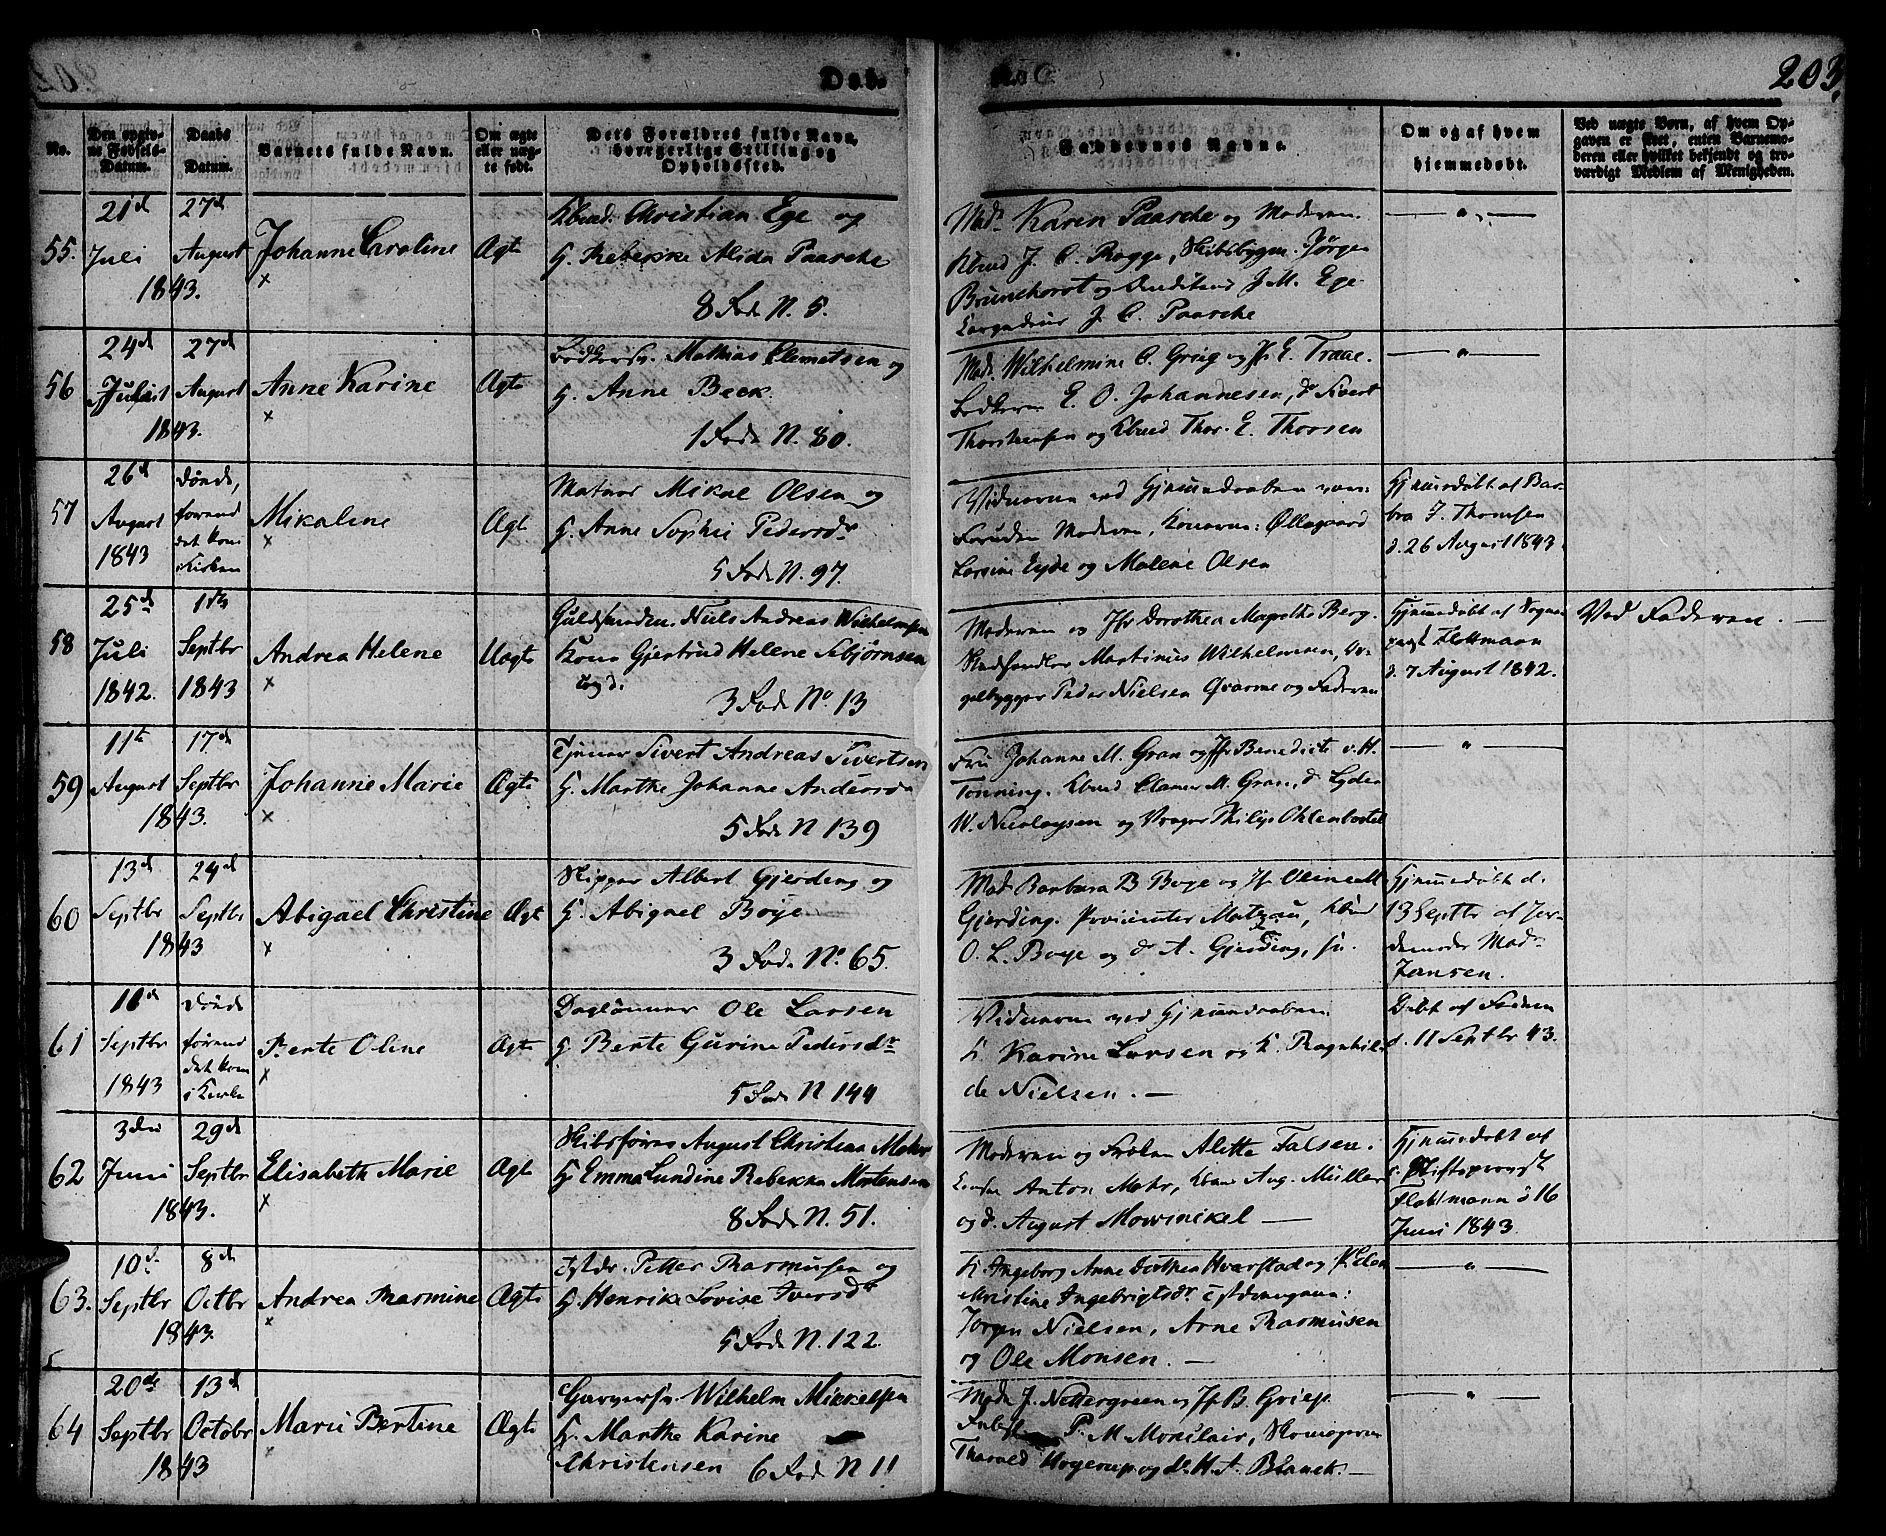 203.
No.
Den opgiv-
ne Fødsels-
Datum.
Daabs
Datum.
Barnets fulde Navn.
Om ægte
eller uæg-
te født.
Dets Forældres fulde Navn,
borgerlige Stilling og
Opholdssted.
Faddernes Navne.
Om og af hvem
hjemmedøbt.
Ved uægte Børn, af hvem Op-
gaven er skeet, enten Barnemo-
deren eller hvilket bekjendt og tro-
værdigt Medlem af Menigheden.
55.
21d
Juli
27d
August
1843.
Johanne Caroline
×
Ægte
Christian Ege og
H. Rebekke Alida Paasche
8 Fods N. 5.
Mad. Karen Paasche og Moderen.
J. C. Rogge, Skibsbygger Jørgen
Brunchorst og J. M. Ege
J. C. Paasche
— " —
56
24d
27d
August
1843.
Anne Karine
×
Ægte
Mathias Clemetsen og
H. Anne Beck.
1 Fods N. 80.
Mad. Wilhelmine C. Grieg og Jfr E. Traae.
E. O. Johannesen, do Sivert
Thorstensen og Thor. E. Thorsen
— " —
57
26d
August
1843
Døende,
forend
det kom
i Kirken
Mikaline
×
Ægte
Matros Mikal Olsen og
H. Anne Sophie Pedersdr
5 Fods N. 97.
Vidnerne ved Hjemmedaaben vare:
Foruden Moderen, Konerne: Øllegaard
Larsine Eyde og Malene Olsen
Hjemmedøbt af Bar-
bra J. Thomsen
d. 26 August 1843.
58
25d
Juli
1842.
1ste
Septbr
1843
Andrea Helene
×
Uægte
Guldsmeden Niels Andreas Wilhelmsen
Kone Gjertrud Helene Sebjørnsen
3 Fods No 13
Moderen og Jfr Dorothea Margrethe Berg.
Martinus Wilhelmsen, Or-
gelbygger Peder Nielsen Qvarme og Faderen
Hjemmedøbt af Sogne-
præst Flottmann
d. 7 August 1842.
Ved Faderen. —
59
11te
August
17de
Septbr
1843.
Johanne Marie
×
Ægte
Tjener Sivert Andreas Sivertsen
H. Marthe Johanne Andersdr
5 Fods N 139
Fru Johanne M. Gran og Jfr Benedicte v. H.
Tonning. Claner M. Gran, do Lyder
W. Nicolaysen og Philip Ohlenbostel
— " —
60
13d
Septbr
24d
Septbr
1843
Abigael Christine
×
Ægte
Skipper Albert Gjerding og
H. Abigael Boye
3 Fods No 65.
Mad. Barbara B Boye og Jfr
Gjerding.
O. L. Boye og do A. Gjerding, jn.
Hjemmedøbt d.
13 Septbr af Jor-
demoder Mad.
Jansen.
61
10d
Septbr
1843
Døende
førend
det kom
i Kirke
Berte Oline
×
Ægte
Daglønner Ole Larsen
H Berte Gurine Pedersdr
5 Fods N 144
Vidnerne ved Hjemmedaaben
K. Karine Larsen og K. Ragnhil-
de Nielsen. —
Døbt af Faderen
d. 11 Septbr 43.
62
3die
Juni
29d
Septbr
1843.
Elisabeth Marie
×
Ægte
Skibsfører August Christian Mohr
H. Emma Lundine Rebekka Mortensen
8 Fods N. 51.
Moderen og Frøken Alette Falsen.
Anton Mohr, Aug. Müller
og d. August Mowinckel —
Hjemmedøbt af
Stiftsprovst
Flottmann d 16
Juni 1843
63.
10d
Septbr
8d
Octbr
1843
Andrea Rasmine
×
Ægte
Petter Rasmusen og
H. Henrike Lovise Iversdr
5 Fods N. 122
K. Ingeborg Anne Dorthea Hvarstad og
Christine Ingebrigtsdr
Jørgen Nielsen, Arne Rasmusen
og Ole Monsen. —
— " —
64
20de
Septbr
13d
Octobr
1843
Marie Bertine
×
Ægte
Garversv. Wilhelm Mikkelsen
H. Marthe Karine
Christensen 6 Fods N 11
Mad. J. Nettergreen og Jfr B. Grieg.
P. M Monclair,
Tharald Høgerup og do H. A. Blanck. —
— " —